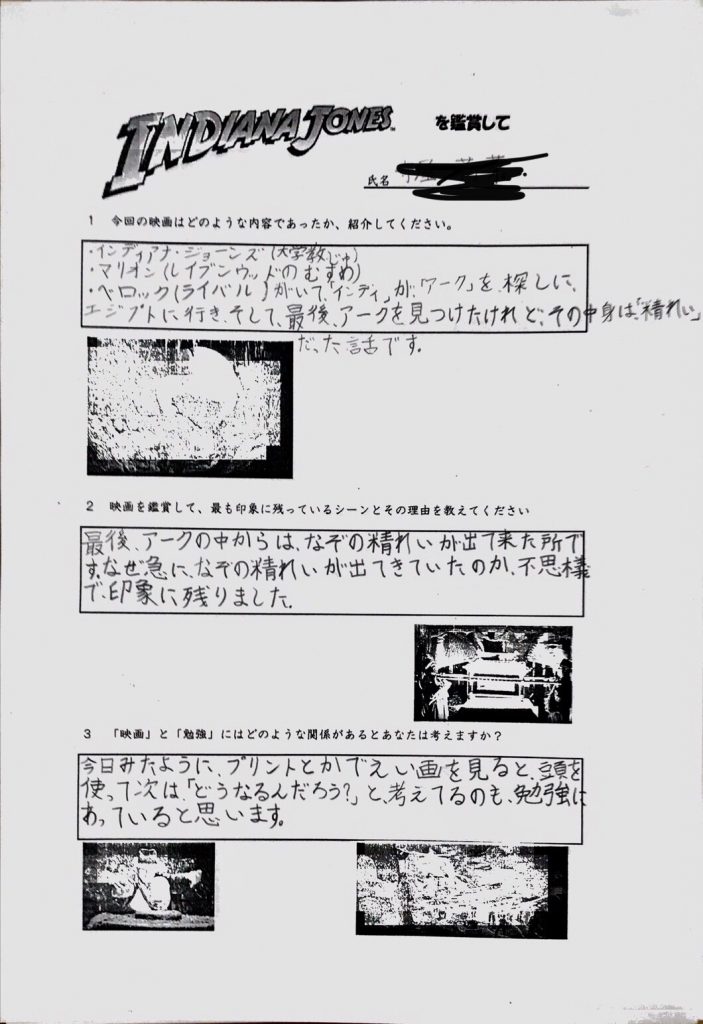 INDIANA JONES™ を鑑賞して
氏名
1 今回の映画はどのような内容であったか、紹介してください。
・インディアナ・ジョーンズ(大学教じゅ)
・マリオン(レイブンウッドのむすめ)
・ベロック(ライバル)がいて「インディ」が、「アーク」を、探しに、
エジプトに行き、そして、最後、アークを見つけたけれど、その中身は、「精れい」
だった話です。
2 映画を鑑賞して、最も印象に残っているシーンとその理由を教えてください
最後、アークの中からは、なぞの精れいが出て来た所で
す。なぜ急に、なぞの精れいが出てきていたのか、不思様
で、印象に残りました。
3 「映画」と「勉強」にはどのような関係があるとあなたは考えますか？
今日みたように、プリントとかでえい画を見ると、頭を
使って次は、「どうなるんだろう?」と、考えてるのも、勉強に
あっていると思います。